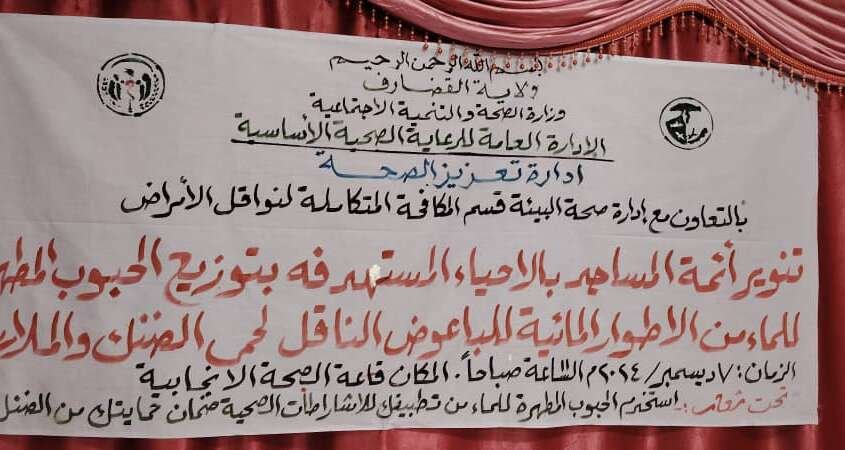 بسم الله الرحمن الرحيم
ولاية القضارف
وزارة الصحة والتنمية الاجتماعية
الإدارة العامة للرعاية الصحية الأساسية
ادارة تعزيز الصحة
بالتعاون مع إدارة صحة البيئة قسم المكافحة المتكاملة لنواقل الأمراض
تنوير أئمة المساجد بالاحياء المستهدفه بتوزيع الحبوب
للماء من الاطوار المائية للباعوض الناقل لحمى الضنك والملا
الزمان: ٧ ديسمبر / ٢٠٢٤م الساعة صباحاً. المكان قاعة الصحة الانجابية
تحت شعار: استخدم الحبوب المطهرة للماء من تطبيقك للاشتراطات الصحية ضمان حمايتك من الضنك